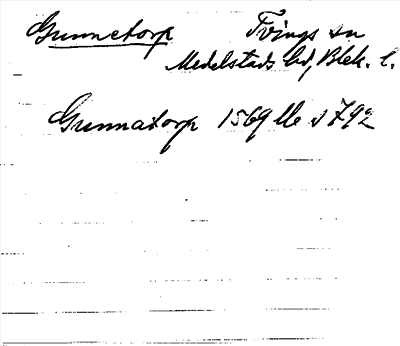 Gunnetorp Tvings sn
Medelstads hd, Blek. l.
Gunnatorp 1569 lls s 792